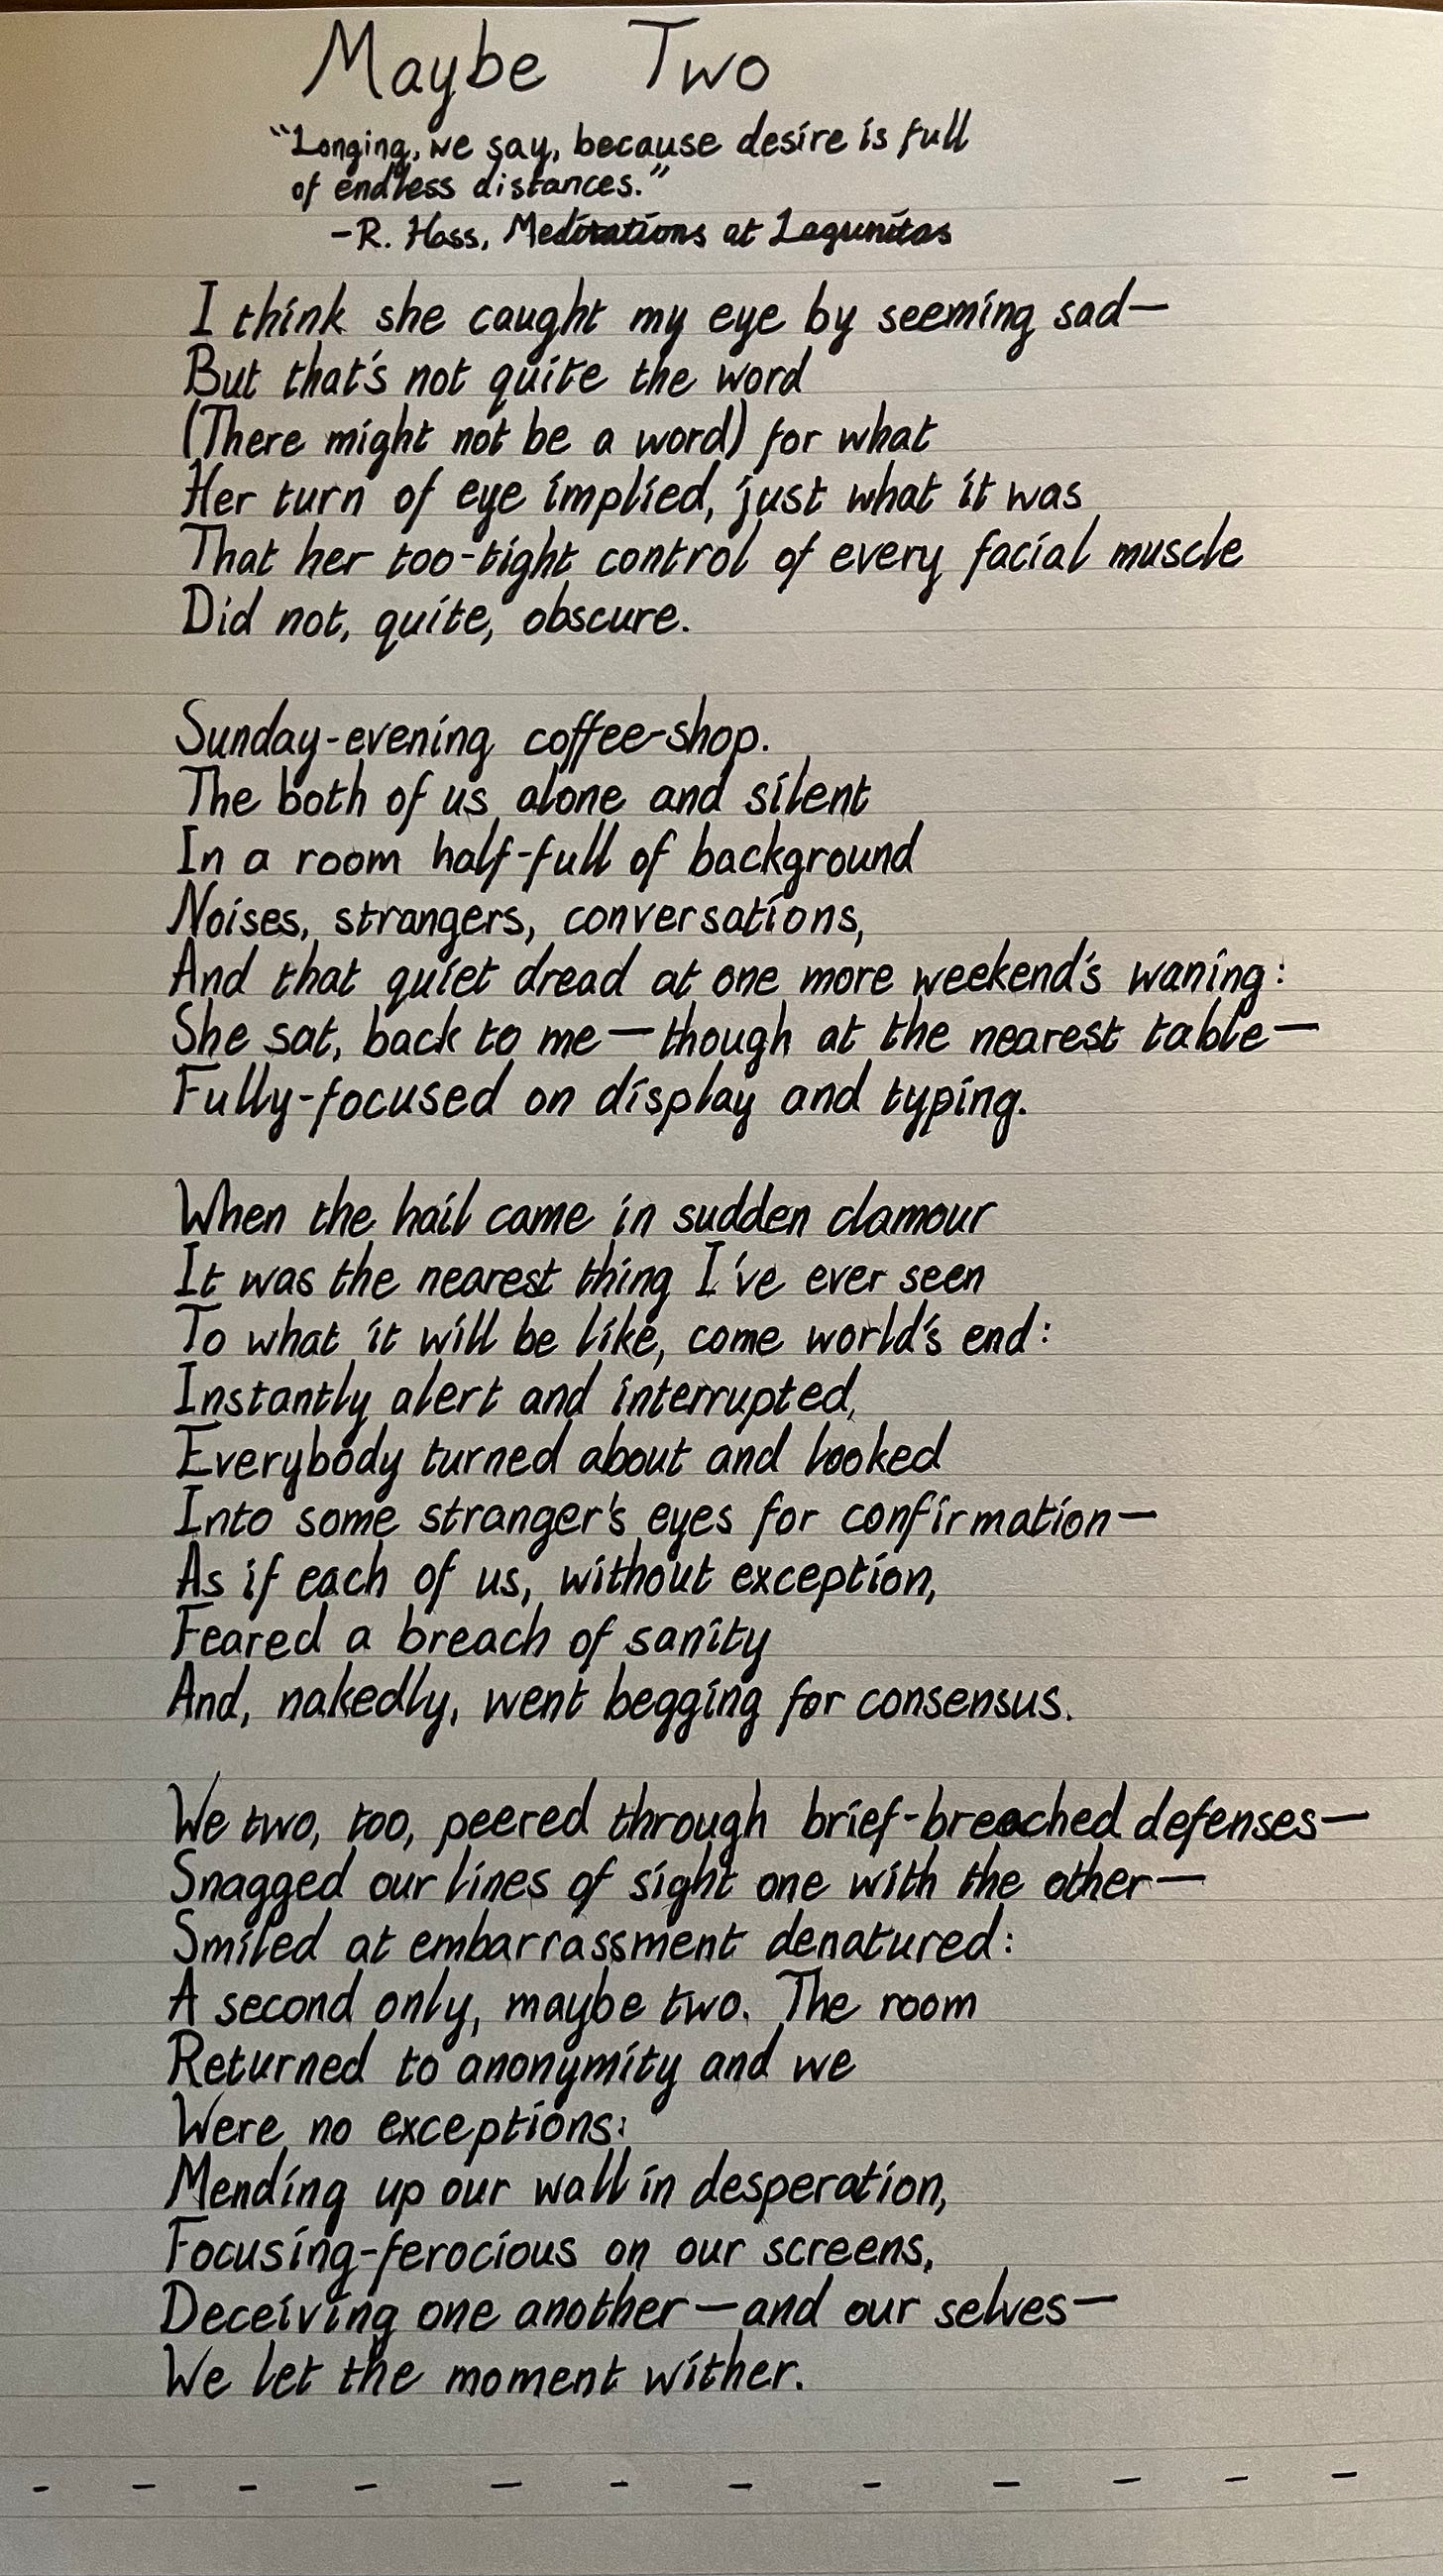 Maybe Two
"Longing, we say, because desire is full
of endless distances."
-R. Hass, Meditations at Lagunitas
I think she caught my eye by seeming sad—
But that's not quite the word
(There might not be a word) for what
Her turn of eye implied, just what it was
That her too-tight control of every facial muscle
Did not, quite, obscure.
Sunday-evening coffee-shop.
The both of us alone and silent
In a room half-full of background
Noises, strangers, conversations,
And that quiet dread at one more weekend's waning:
She sat, back to me—though at the nearest table—
Fully-focused on display and typing.
When the hail came in sudden clamour
It was the nearest thing I've ever seen
To what it will be like, come world's end:
Instantly alert and interrupted,
Everybody turned about and looked
Into some stranger's eyes for confirmation—
As if each of us, without exception,
Feared a breach of sanity
And, nakedly, went begging for consensus.
We two, too, peered through brief-breached defenses—
Snagged our lines of sight one with the other—
Smiled at embarrassment denatured:
A second only, maybe two. The room
Returned to anonymity and we
Were no exceptions:
Mending up our wall in desperation,
Focusing-ferocious on our screens,
Deceiving one another—and our selves—
We let the moment wither.
- - - - - - - - - - - -